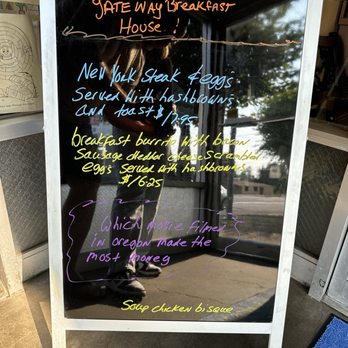 GATEWAY Breakfast
House!
New York Steak & eggs
Served with hashbrowns
and toast $17.95
breakfast burrito with bacon
Sausage chedder cheese scrambled
eggs served with hashbrowns
$16.25
Which movie filmed
in oregon made the
most money
Soup chicken bisque